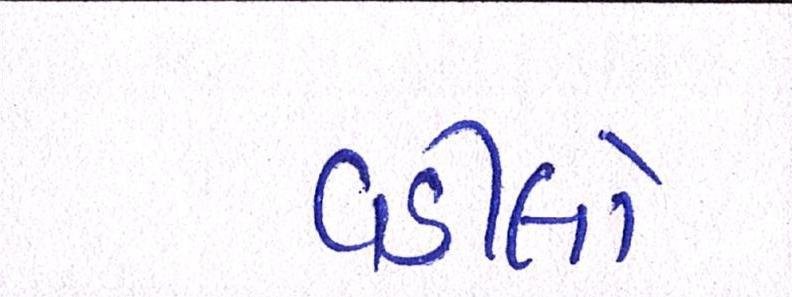 વડીલો